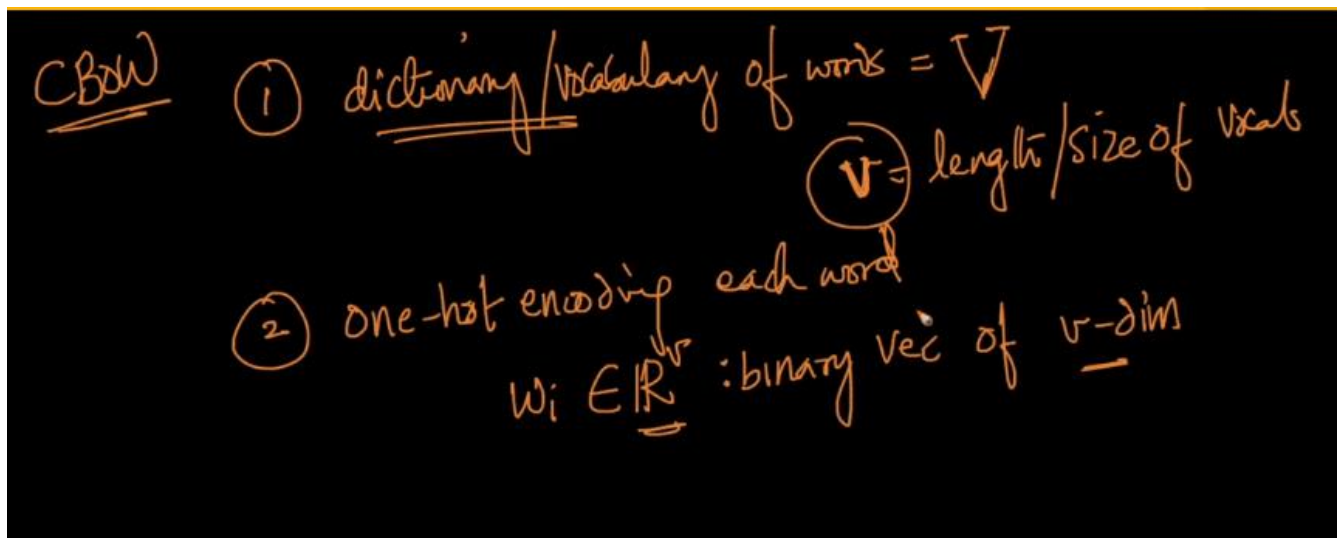 CBOW ① dictionary/vocabulary of words = V
v = length/size of vocab
② one-hot encoding each word
Wi ∈ ℝ^v : binary vec of v-dim